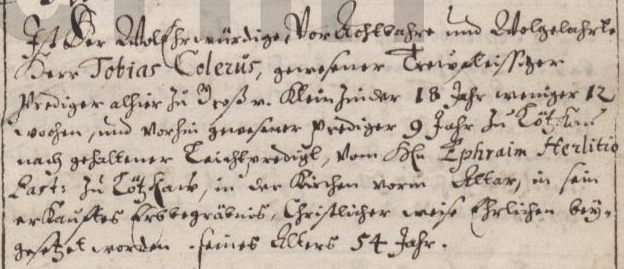 Ist Der WolEhrwürdige, Vor Achtbahre und Wolgelahrte
Herr Tobias Colerus, gewesener Trewfleissiger
Prediger alhier Zu Groß v. Klein 18 Jahr weniger 12
wochen, und vorhin gewesener prediger 9 Jahr zu
nach gehaltener Leichpredigt, vom Hn Ephraim Herlitio
Past: Zu in der Kirchen vorm Altar, in sein
erkaufftes Erbbegräbnis, Christlicher weise Ehrlichen bey-
gesetzet worden. seines Alters 54 Jahr.